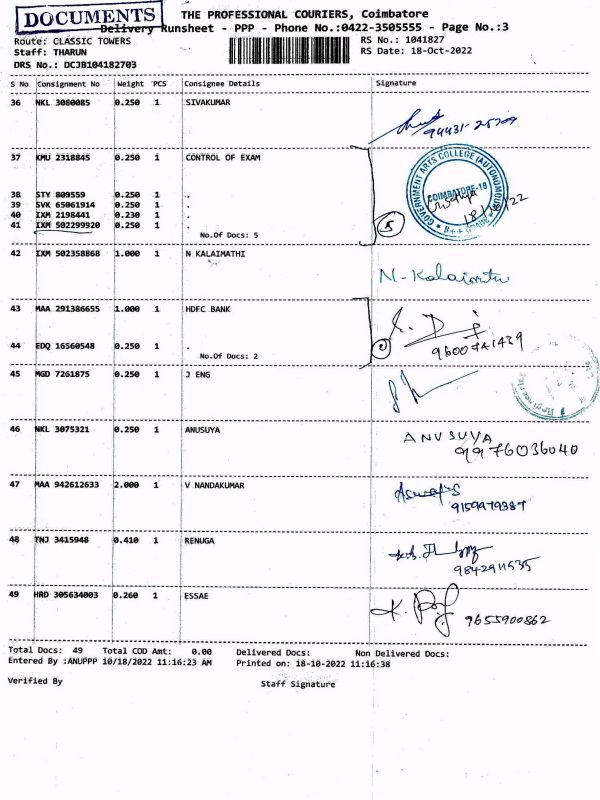 DOCUMENTS
THE PROFESSIONAL COURIERS, Coimbatore
Delivery Runsheet - PPP - Phone No.:0422-3505555 - Page No.:3
Route: CLASSIC TOWERS RS No.: 1041827
Staff: THARUN RS Date: 18-Oct-2022
DRS No.: DCJB104182703
S No Consignment No Weight PCS Consignee Details Signature
36 NKL 3080085 0.250 1 SIVAKUMAR
94431-25709
37 KMU 2318845 0.250 1 CONTROL OF EXAM
GOVERNMENT ARTS COLLEGE (AUTONOMOUS)
COIMBATORE-18
38 STY 809559 0.250 1 .
39 SVK 65061914 0.250 1 .
40 IXM 2198441 0.230 1 .
41 IXM 502299920 0.250 1 .
No.Of Docs: 5
5
42 IXM 502358868 1.000 1 N KALAIMATHI
N. Kalaimathi
43 MAA 291386655 1.000 1 HDFC BANK
44 EDQ 16560548 0.250 1 .
No.Of Docs: 2
2
45 MGD 7261875 0.250 1 J ENG
46 NKL 3075321 0.250 1 ANUSUYA
ANUSUYA
9976036040
47 MAA 942612633 2.000 1 V NANDAKUMAR
9159479387
48 TNJ 3415948 0.410 1 RENUGA
9842911535
49 HRD 305634003 0.260 1 ESSAE
9655900862
Total Docs: 49 Total COD Amt: 0.00 Delivered Docs: Non Delivered Docs:
Entered By :ANUPPP 10/18/2022 11:16:23 AM Printed on: 18-10-2022 11:16:38
Verified By Staff Signature